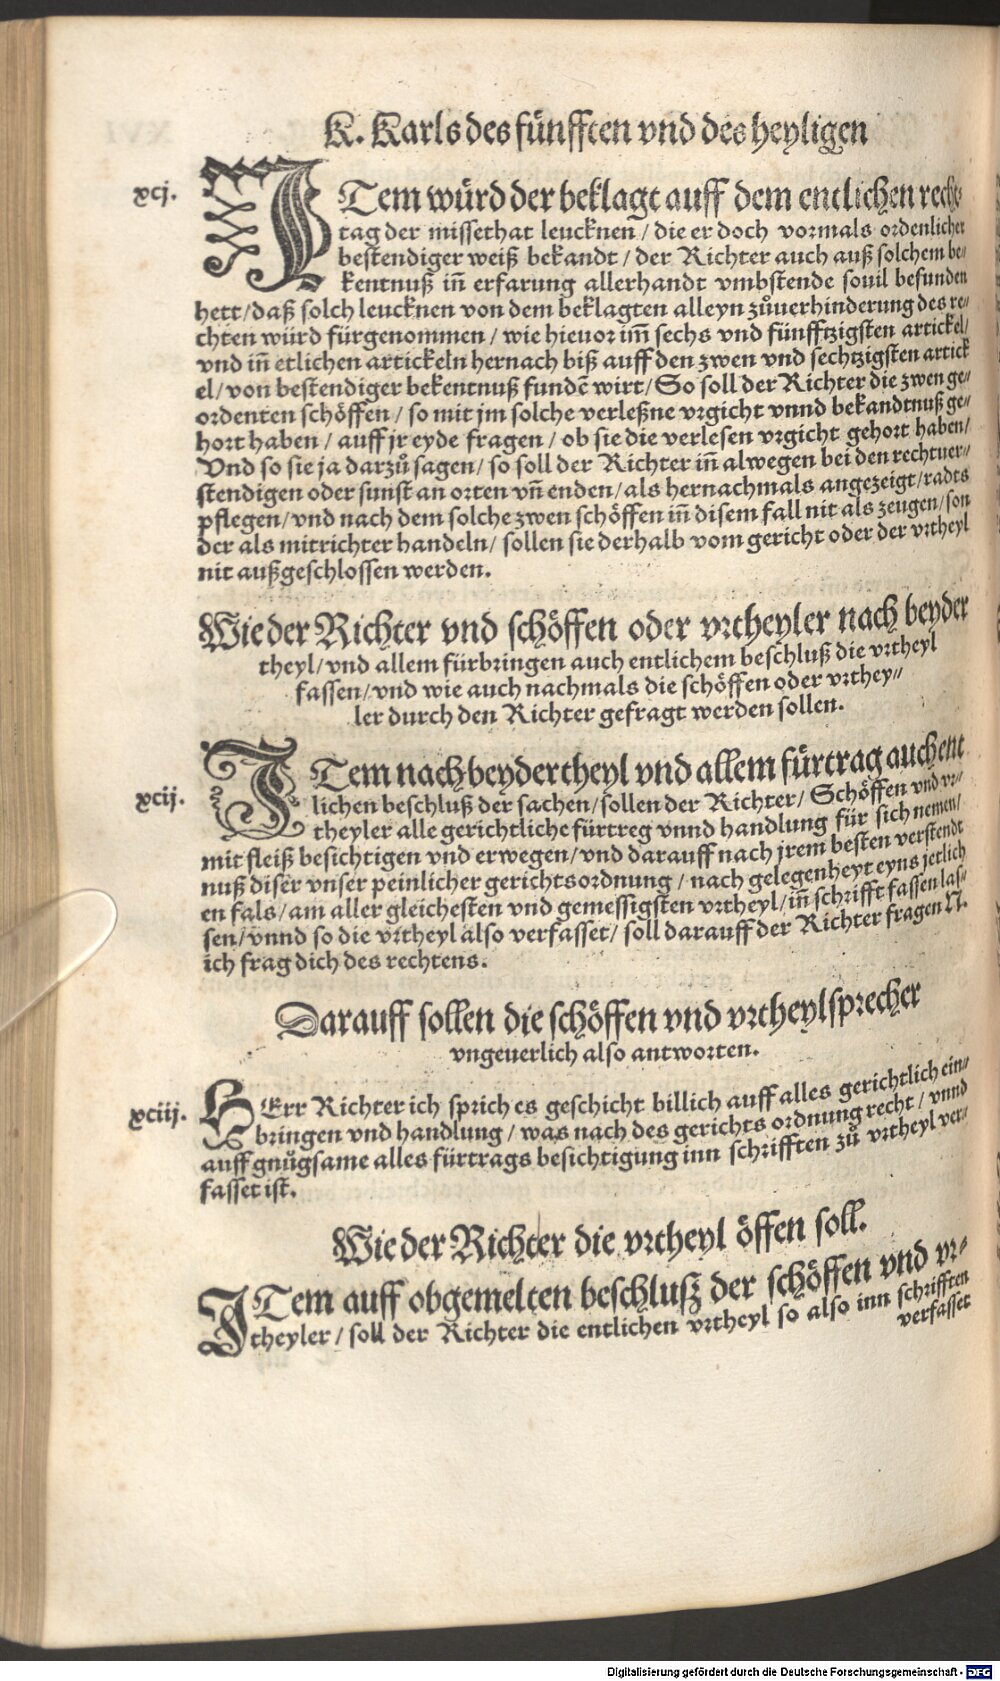 K. Karls des fünfften vnd des heyligen
xcj.
ITem würd der beklagt auff dem entlichen recht-
tag der missethat leucknen / die er doch vormals ordenlicher
bestendiger weiß bekandt / der Richter auch auß solchem be-
kentnuß iñ erfarung allerhandt vmbstende souil befunden
hett/daß solch leucknen von dem beklagten alleyn zůuerhinderung des re-
chten würd fürgenommen / wie hieuor im̃ sechs vnd fünfftzigsten artickel/
vnd iñ etlichen artickeln hernach biß auff den zwen vnd sechtzigsten artick
el/von bestendiger bekentnuß fundē wirt/So soll der Richter die zwen ge-
ordenten schöffen / so mit jm solche verleßne vrgicht vnnd bekandtnuß ge-
hort haben / auff jr eyde fragen / ob sie die verlesen vrgicht gehort haben/
Vnd so sie ja darzů sagen/ so soll der Richter iñ alwegen bei den rechtuer-
stendigen oder sunst an orten vñ enden/als hernachmals angezeigt/radts
pflegen/vnd nach dem solche zwen schöffen iñ disem fall nit als zeugen/son
der als mitrichter handeln/ sollen sie derhalb vom gericht oder der vrtheyl
nit außgeschlossen werden.
Wie der Richter vnd schöffen oder vrtheyler nach beyder
theyl/vnd allem fürbringen auch entlichem beschluß die vrtheyl
fassen/vnd wie auch nachmals die schöffen oder vrthey-
ler durch den Richter gefragt werden sollen.
xcij.
ITem nach beyder theyl vnd allem fürtrag auch ent
lichen beschluß der sachen/sollen der Richter/ Schöffen vnd vr-
theyler alle gerichtliche fürtreg vnnd handlung für sich nemen/
mit fleiß besichtigen vnd erwegen/vnd darauff nach jrem besten verstendt
nuß diser vnser peinlicher gerichtsordnung / nach gelegenheyt eyns jetlich
en fals/am aller gleichesten vnd gemessigsten vrtheyl/iñ schrifft fassen las-
sen/vnnd so die vrtheyl also verfasset/ soll darauff der Richter fragen N.
ich frag dich des rechtens.
Darauff sollen die schöffen vnd vrtheylsprecher
vngeuerlich also antworten.
xciij.
HErr Richter ich sprich es geschicht billich auff alles gerichtlich ein-
bringen vnd handlung / was nach des gerichts ordnung recht / vnnd
auff gnůgsame alles fürtrags besichtigung inn schrifften zů vrtheyl ver-
fasset ist.
Wie der Richter die vrtheyl öffen soll.
ITem auff obgemelten beschlusz der schöffen vnd vr-
theyler / soll der Richter die entlichen vrtheyl so also inn schrifften
verfasset
Digitalisierung gefördert durch die Deutsche Forschungsgemeinschaft - DFG